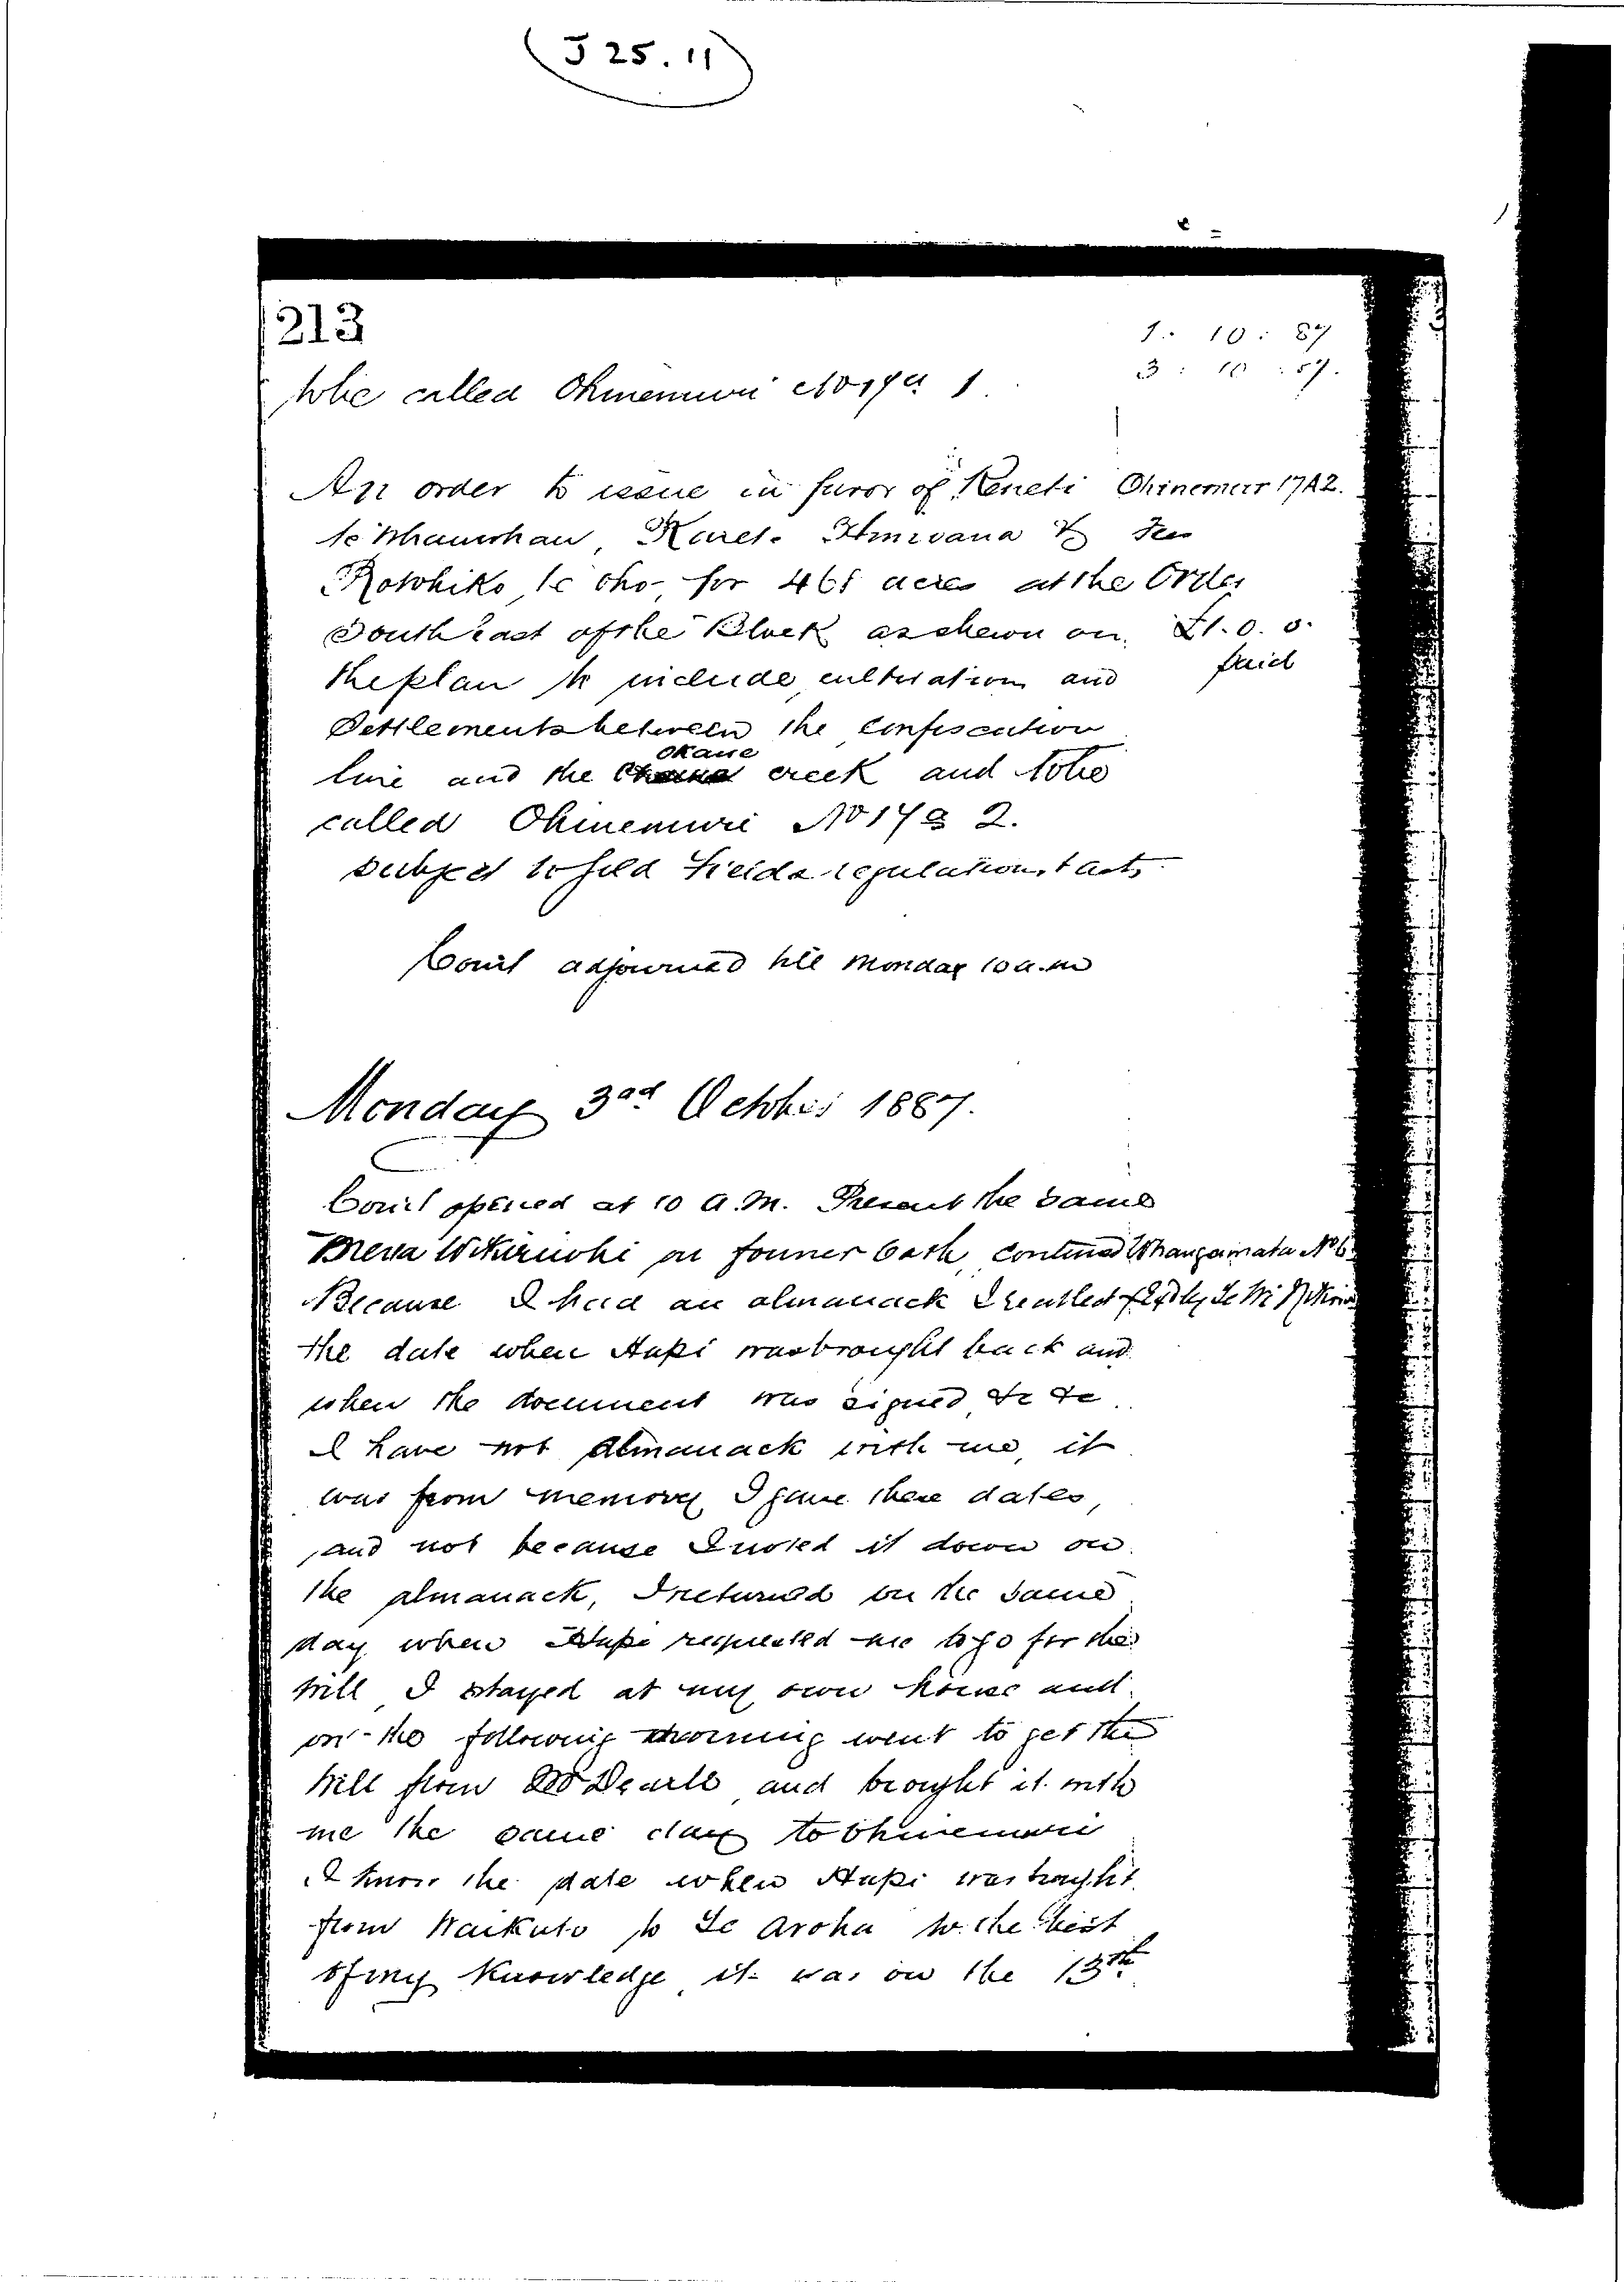 (J 25.11)
213
1 : 10 : 87
3 : 10 : 87.
to be called Ohinemuri No 17a 1.
An order to issue in favor of Keneti Ohinemuri 17A2.
te Whauwhau, Karet. Hinivana &
Rotohiko te oho for 461 acres at the Order
South East of the Block as shewn on £1.0.0.
the plan to include cultivation and paid
Settlements between the Confiscation
Okane
line and the creek and to be
called Ohinemuri No 17a 2.
subject to Gold Fields regulations & acts
Court adjourned till Monday 10 a.m
Monday 3rd October 1887.
Court opened at 10 A.M. Present the Same
Mera Wikiriwhi on former Oath, Continued Whangamata No 6
Because I had an almanack I recollect
the date when Hapi was brought back and
when the document was signed &c &c
I have not almanack with me, it
was from memory I gave these dates,
and not because I noted it down on
the almanack, I returned on the same
day when Hapi requested me to go for the
Will I stayed at my own house and
on the following morning went to get the
Will from and brought it with
me the same day to Ohinemuri
I know the date when Hapi was brought
from Waikato to Te Aroha to the best
of my Knowledge it was on the 13th